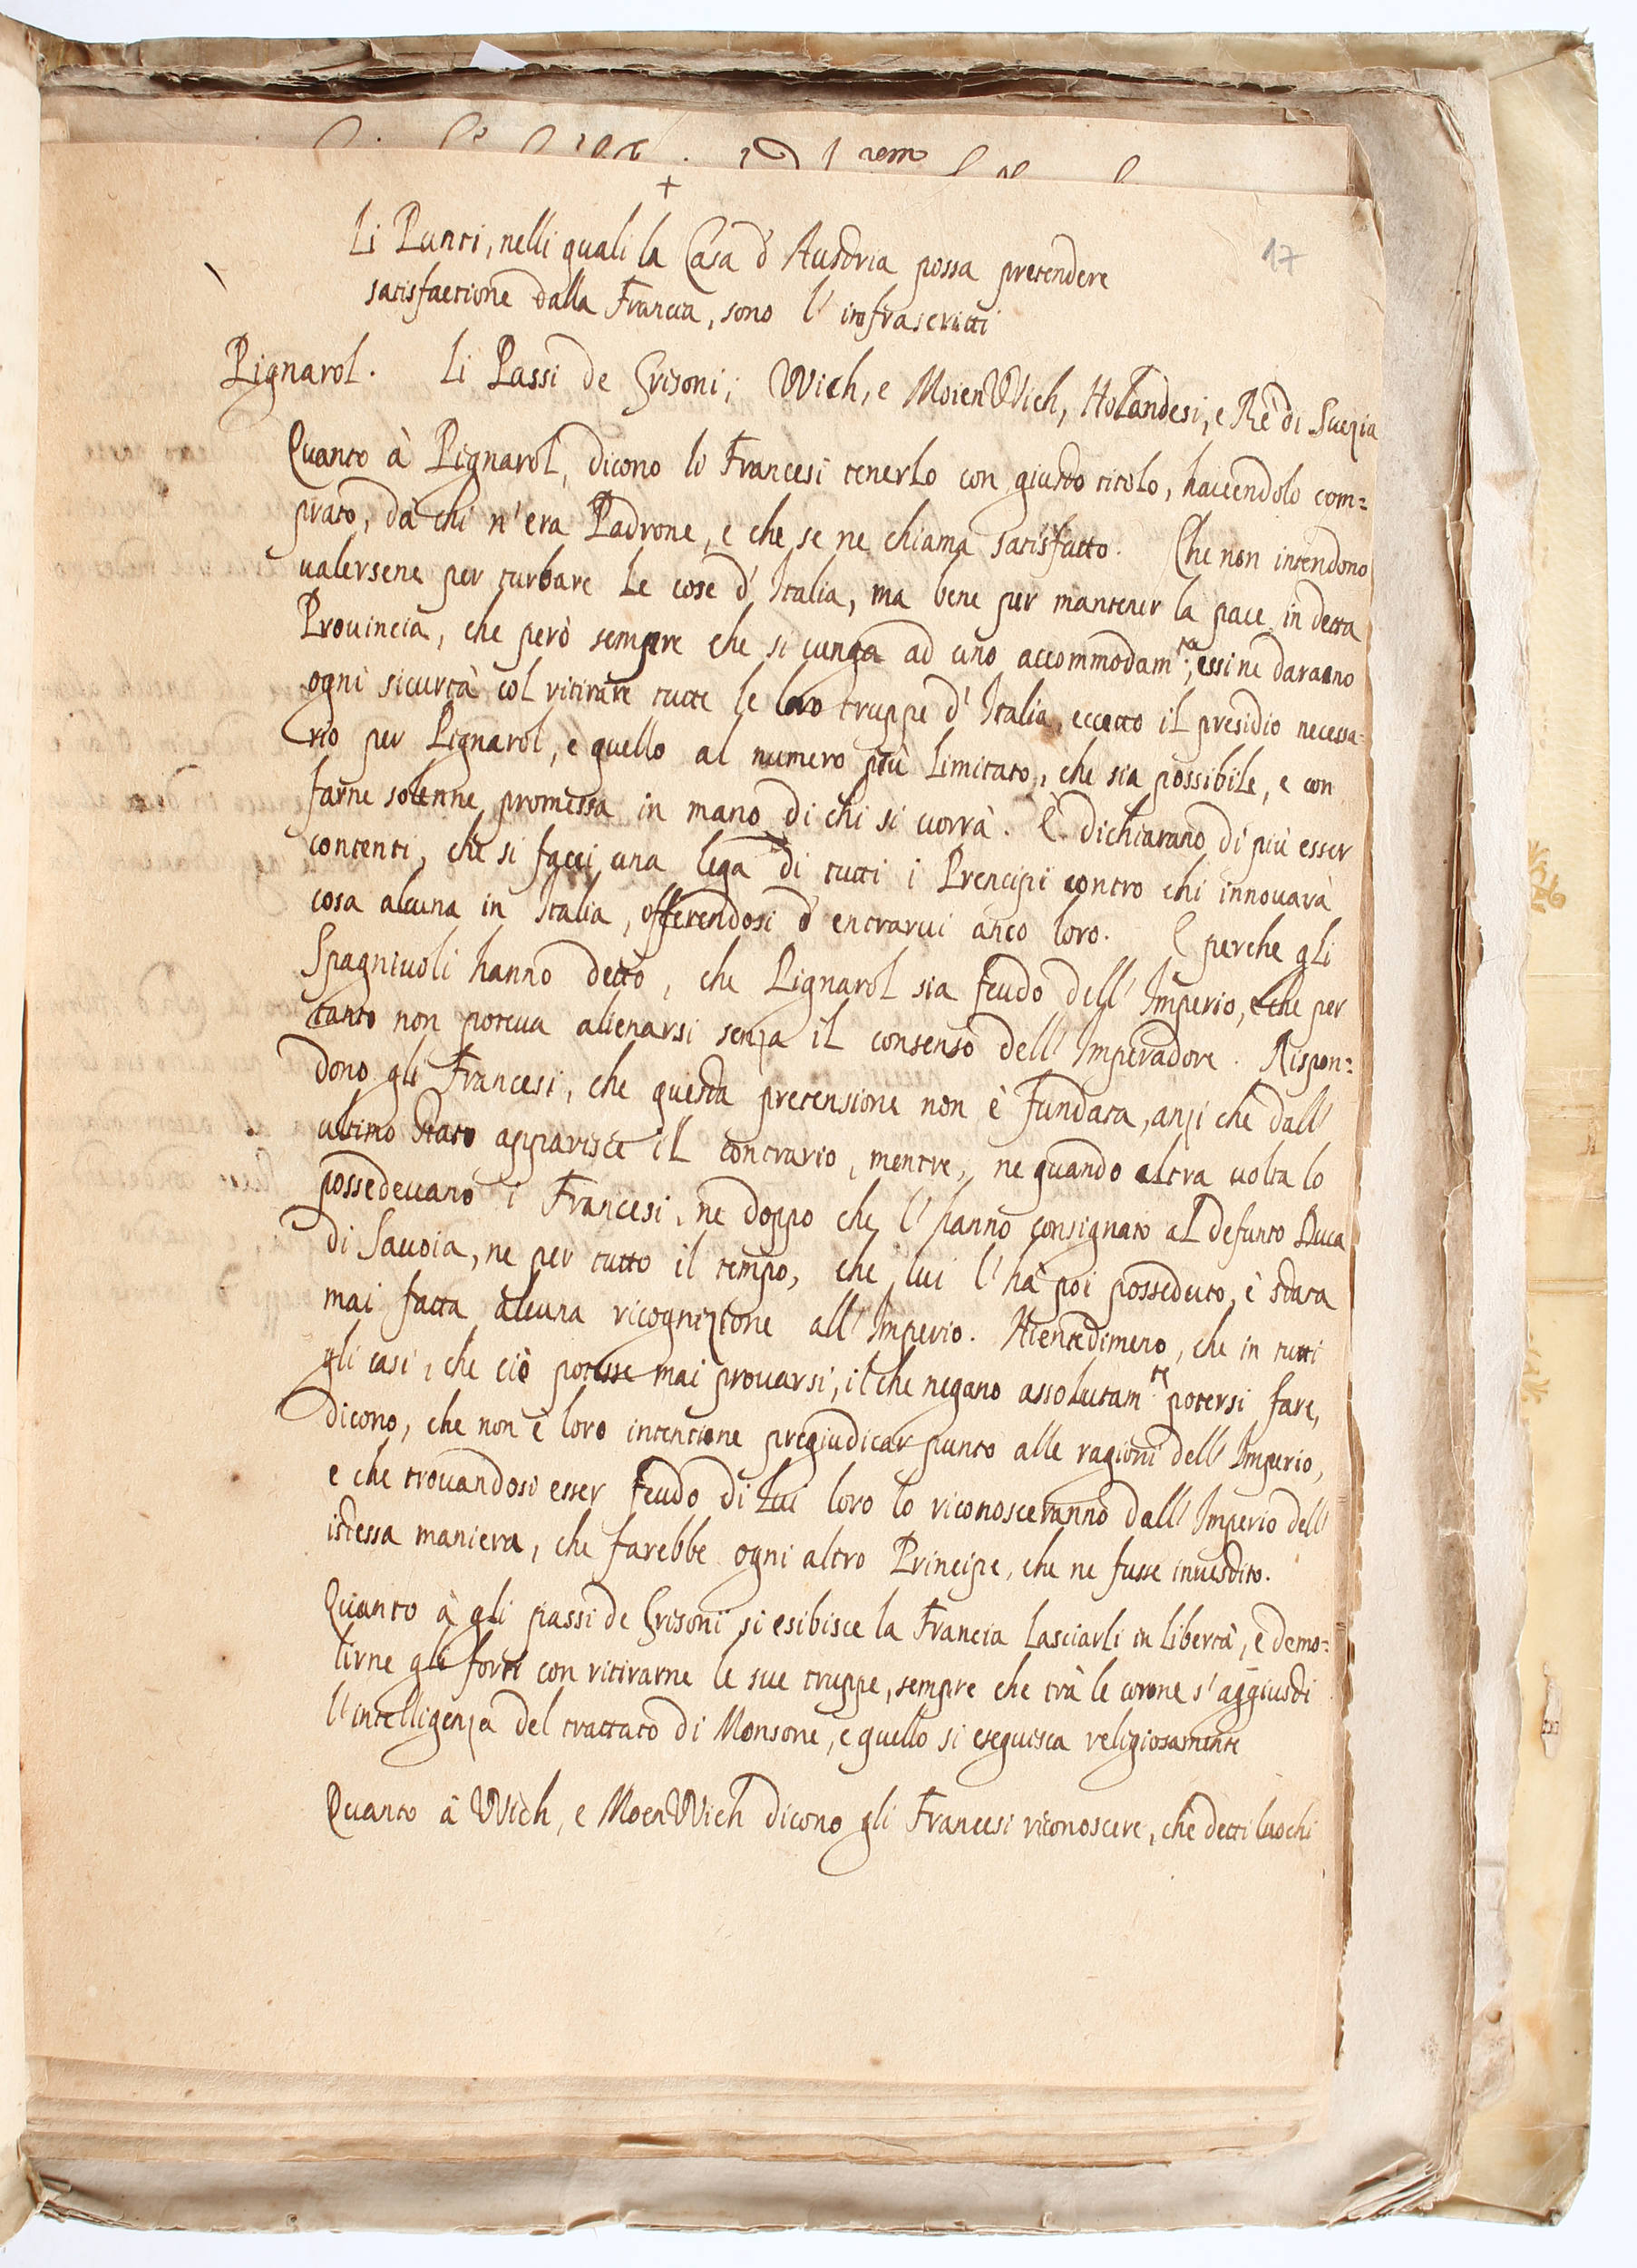 +
17
Li Punti, nelli quali la Casa d'Austria possa pretendere
satisfactione dalla Francia, sono l'infrascritti
Pignarol. Li Passi de Grisoni; Wich, e MoienWich, Holandesi, e Rè di Suezia
Quanto à Pignarol, dicono li Francesi tenerlo con giusto titolo, havendolo com=
prato, da chi n'era Padrone, e che se ne chiama satisfatto. Che non intendono
valersene per turbare le cose d'Italia, ma bene per mantener la pace in detta
Provincia, che però sempre che si venga ad uno accommodam.to, essi ne daranno
ogni sicurtà col ritirare tutte le loro truppe d'Italia, eccetto il presidio necessa=
rio per Pignarol, e quello al numero più limitato, che sia possibile, e con
farne solenne promessa in mano di chi si vorrà. E dichiarano di più esser
contenti, che si facci una lega di tutti i Prencipi contro chi innovarà
cosa alcuna in Italia, offerendosi d'entrarvi anco loro. E perche gli
Spagnivoli hanno detto, che Pignarol sia feudo dell'Imperio, e che per
tanto non poteva alienarsi senza il consenso dell'Imperadore. Rispon=
dono gli Francesi, che questa pretensione non è fundata, anzi che dall'
ultimo stato apparisce il contrario, mentre, ne quando altra volta lo
possedevano i Francesi, ne doppo che l'hanno consignato al defunto Duca
di Savoia, ne per tutto il tempo, che lui l'hà poi posseduto, è stata
mai fatta alcuna ricognizione all'Imperio. Nientedimeno, che in tutti
gli casi, che ciò potesse mai provarsi, il che negano assolutam.te potersi fare,
dicono, che non è loro intentione pregiudicar punto alle ragioni dell'Imperio,
e che trovandosi esser feudo di lui loro lo riconosceranno dall'Imperio dell'
istessa maniera, che farebbe ogni altro Principe, che ne fusse investito.
Quanto à gli passi de Grisoni si esibisce la Francia lasciarli in libertà, e demo=
lirne gli forti con ritirarne le sue truppe, sempre che trà le corone s'aggiusti
l'intelligenza del trattato di Monsone, e quello si eseguisca religiosamente
Quanto à Wich, e MoenWich dicono gli Francesi riconoscere, che detti luochi